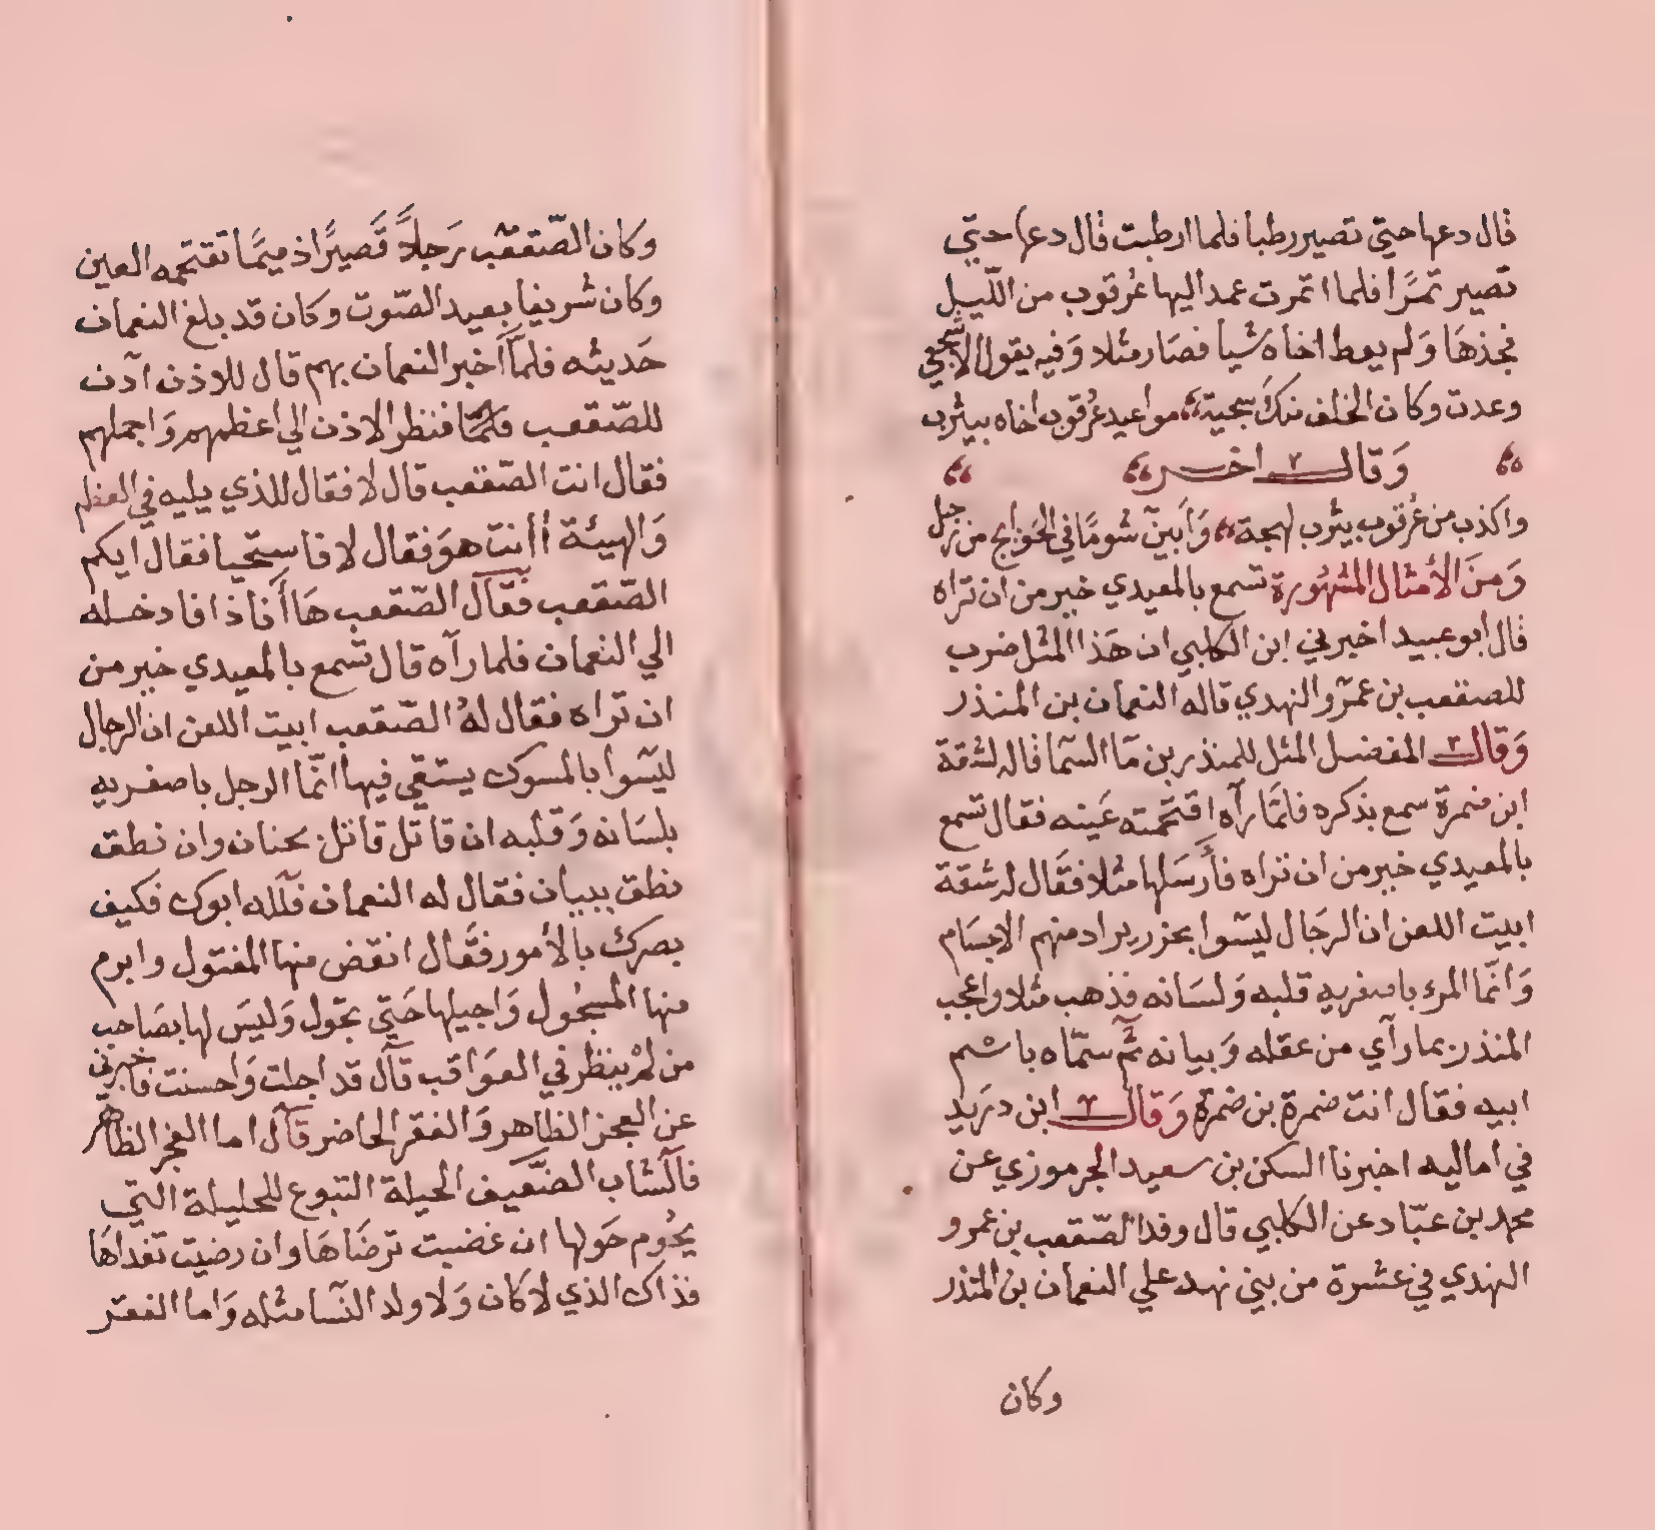 قال دعها حتي تصير رطبا فلما ارطبت قال دعها حتي
تصير تمرًا فلما اتمرت عمد اليها عُرقوب من اللّيل
فجذهَا وَلم يعط اخاه شيا فصَار مثلا وَفيه يقول الاشجعي
وعدت وكان الخلف منكَ سجية مواعيد عُرقوب اخاه بيثرب
وَقال اخر
واكذب من عُرقوب يثرب لهجة وَابين شومًا في الحَوايج من زحل
وَمنَ الأمثال المشهُورة تسمع بالمعيدي خير من ان تراه
قال ابو عبيد اخبرني ابن الكلبي ان هَذا المثل ضرب
للصقعب بن عمرو النهدي قاله النعمان بن المنذر
وَقال المفضل المثل للمنذر بن مَا السّما قاله لشقة
ابن ضمرة سمع بذكره فلمّا رآه اقتحمته عَينه فقال تسمع
بالمعيدي خير من ان تراه فأرسَلها مثلا فقَال له شقة
ابيت اللعن ان الرجَال ليسُوا بجزر يراد منهم الاجسَام
وَانّما المرء باصغريه قلبه وَلسَانه فذهب مثلا واعجب
المنذر بما رآي من عقله وَبيانه ثمّ سمّاه باسْم
ابيه فقال انت ضمرة بن ضمرة وَقال ابن دريد
في اماليه اخبرنا السكن بن سعيد الجرموزي عن
محمد بن عبّاد عن الكلبي قال وفد الصّقعب بن عمرو
النهدي في عشرة من بني نهد علي النعمان بن المنذر
وكان
وكان الصّقعب رَجلاً قَصيرًا ذميمًا تقتحمه العين
وكان شريفا بعيد الصّوت وكان قد بلغ النعمان
حَديثه فلمّا اَخبر النعمان بهم قال للاذن آذن
للصّقعب فنظر الاذن الي اعظمهم وَاجملهم
فقال انت الصّقعب قال لا فقال للذي يليه في العظم
وَالهيئة أأنت هوَ فقال لا فاستحيا فقال ايكم
الصّقعب فقال الصّقعب هَا أنا ذا فادخله
الي النعمان فلما رآه قال تسمع بالمعيدي خير من
ان تراه فقال لهُ الصّقعب ابيت اللعن ان الرجال
ليسُوا بالمسوك يستقي فيها انّما الرجل باصغريه
بلسَانه وَقلبه ان قاتل قاتل بجنان وان نطق
نطق ببيان فقال له النعمان فلله ابوك فكيف
بصرك بالأمور فقَال انقض منها المفتول وابرم
منها المسجُول وَاجيلها حَتي تجول وَليسَ لها بصَاحب
من لمْ ينظر في العوَاقب قال قد اجلت وَاحسنت فاخبرني
عن العجز الظاهر وَالفقر الحاضر قال اما العجز الظاهر
فالشاب الضّعيف الحيلة التبوع للحليلة التي
يحُوم حَولها ان غضبت ترضَاهَا وان رضيت تفداهَا
فذاك الذي لا كَان وَلا ولد النّسا مثله وَاما الفقر